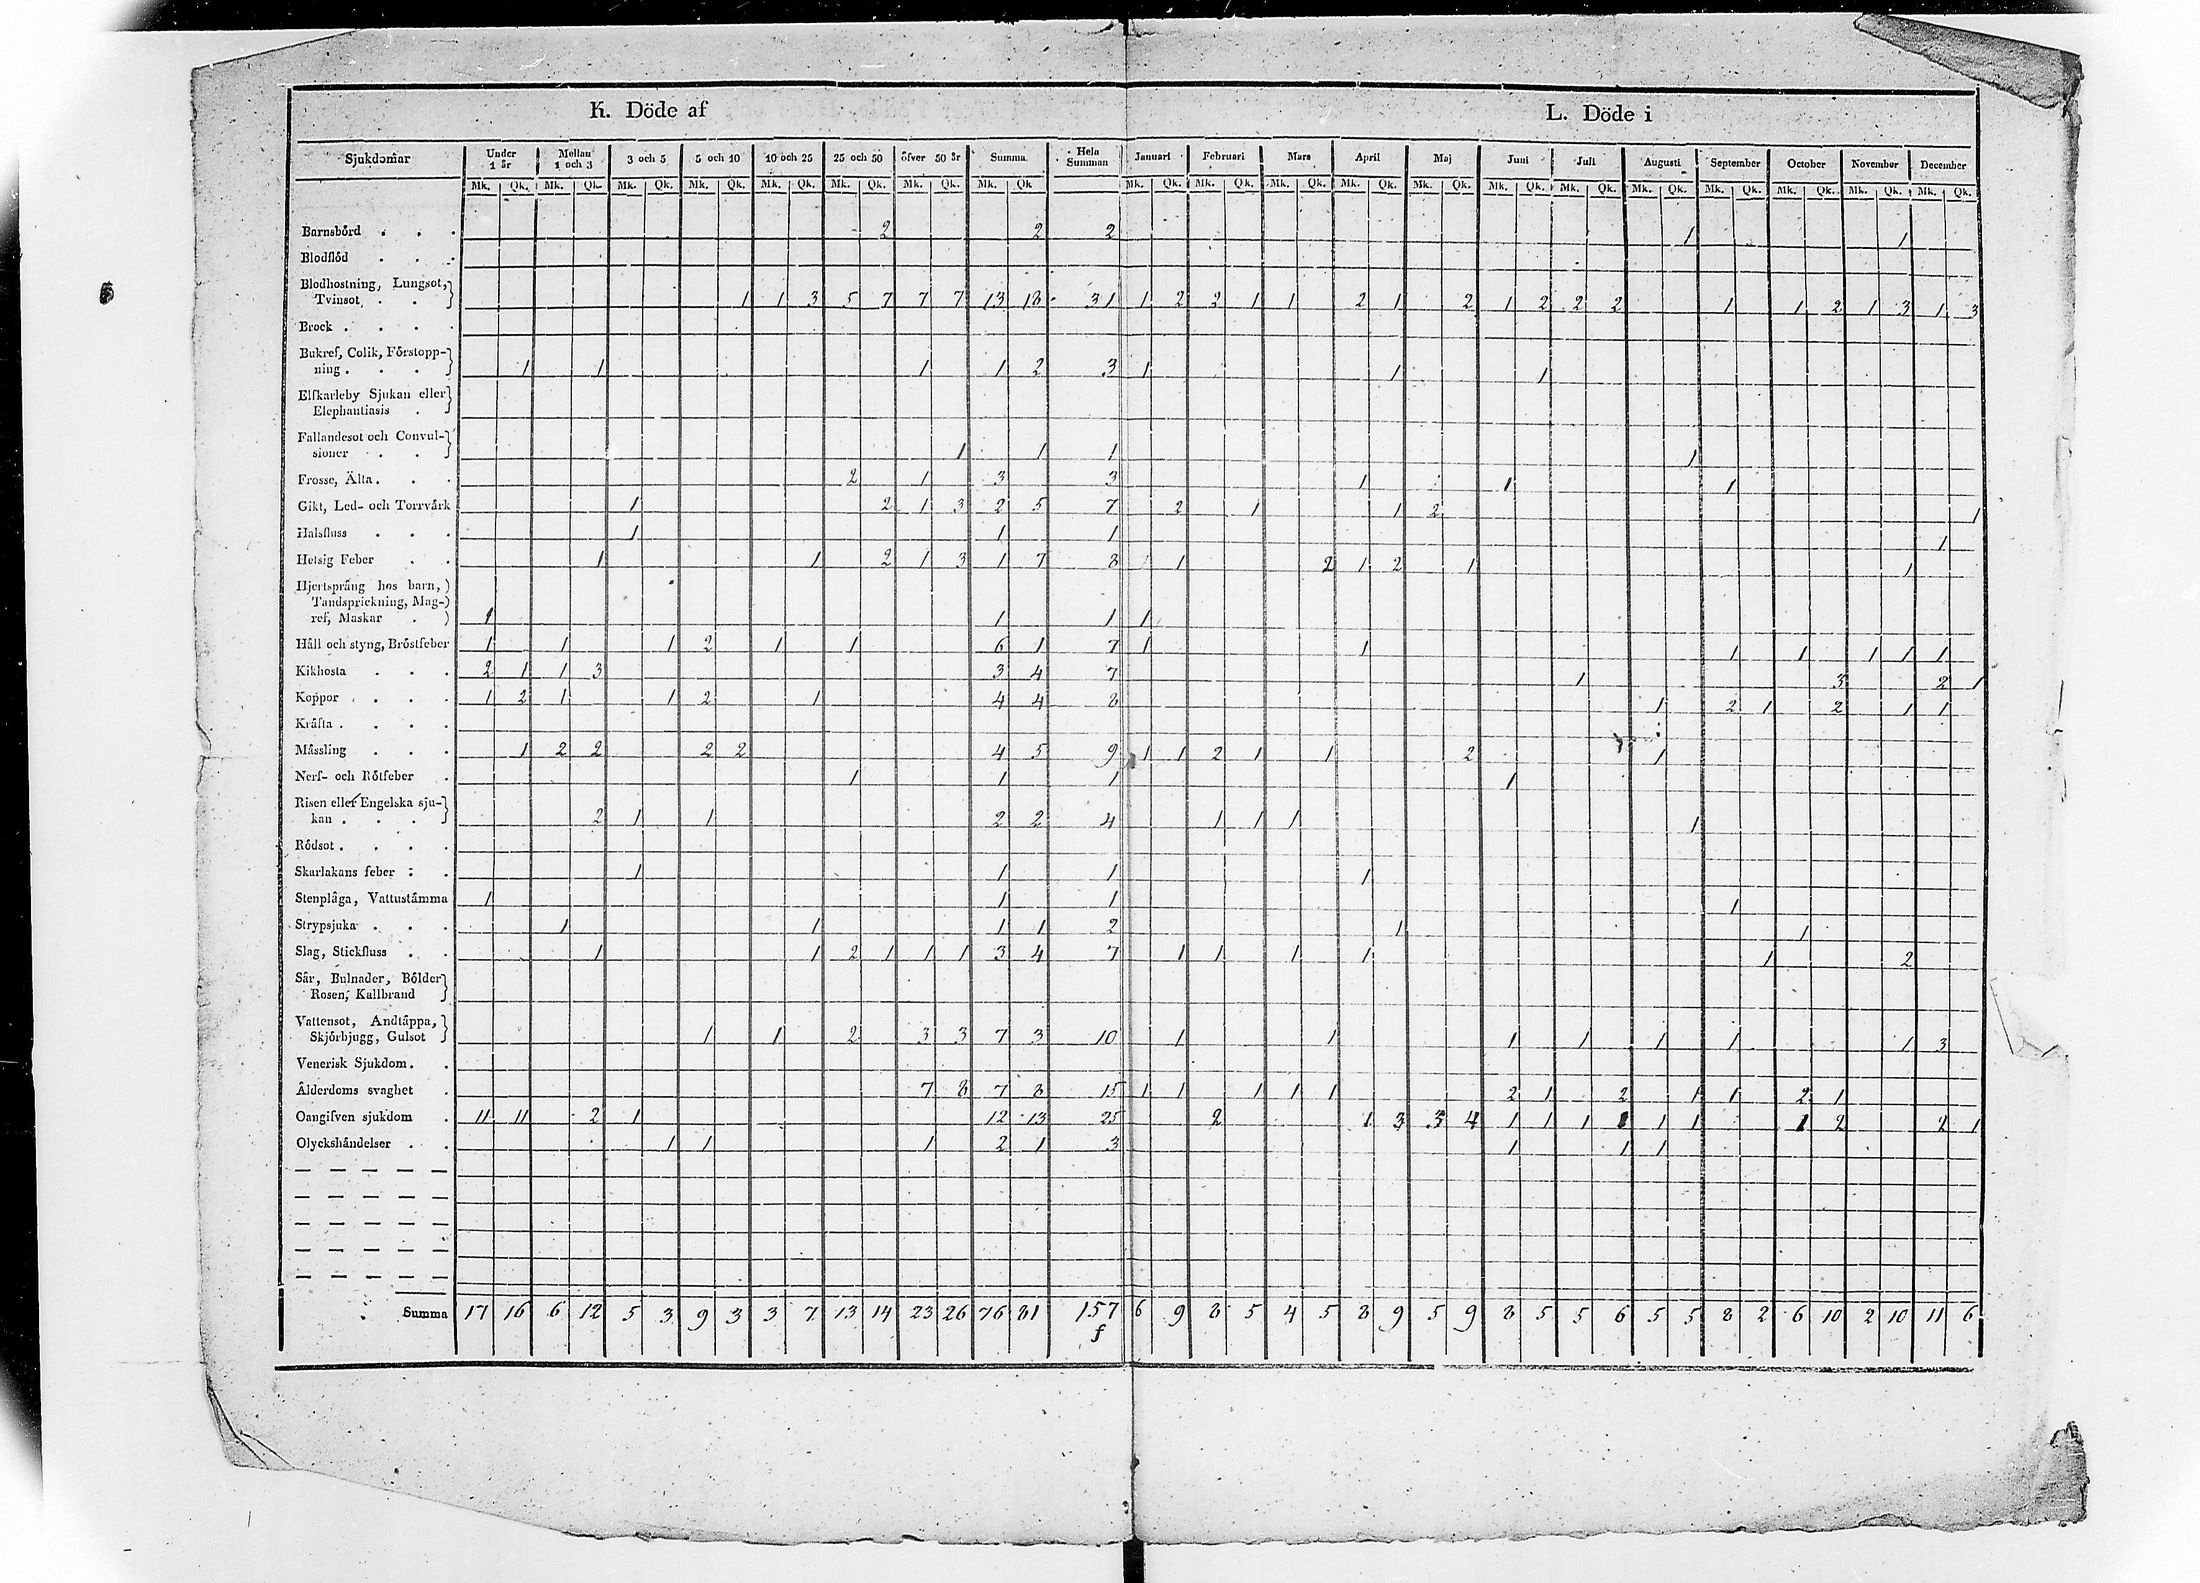 K. Döde af L. Döde i
Sjukdomar Under 1 år Mellan 1 och 3 3 och 5 5 och 10 10 och 25 25 och 50 öfver 50 år Summa Hela Summan Januari Februari Mars April Maj Juni Juli Augusti September October November December
Mk. Qk. Mk. Qk. Mk. Qk. Mk. Qk. Mk. Qk. Mk. Qk. Mk. Qk. Mk. Qk Mk. Qk. Mk. Qk. Mk. Qk. Mk. Qk. Mk. Qk. Mk. Qk. Mk. Qk. Mk. Qk. Mk. Qk. Mk. Qk. Mk. Qk. Mk. Qk.
Barnsbörd . . . 2 2 2 1 1
Blodflöd . . .
Blodhostning, Lungsot,
Tvinsot . . . 1 1 3 5 7 7 7 13 18 31 1 2 2 1 1 2 1 2 1 2 2 2 1 1 2 1 3 1 3
Brock . . . .
Bukref, Colik, Förstopp-
ning . . . 1 1 1 1 2 3 1 1 1
Elfkarleby Sjukan eller
Elephantiasis .
Fallandesot och Convul-
sioner . . 1 1 1 1
Frosse, Älta . . . 2 1 3 3 1 1 1
Gikt, Led- och Torrvärk 1 2 1 3 2 5 7 2 1 1 2 1
Halsfluss . . . 1 1 1 1
Hetsig Feber . . 1 1 2 1 3 1 7 8 1 2 1 2 1 1
Hjertsprång hos barn,
Tandsprickning, Mag-
ref, Maskar . 1 1 1 1
Håll och styng, Bröstfeber 1 1 1 2 1 1 6 1 7 1 1 1 1 1 1 1
Kikhosta . . . 2 1 1 3 3 4 7 1 3 2 1
Koppor . . . 1 2 1 1 2 1 4 4 8 1 2 1 2 1 1
Kräfta . . . .
Mässling . . . 1 2 2 2 2 4 5 9 1 1 2 1 1 2 1
Nerf- och Rötfeber . 1 1 1 1
Risen eller Engelska sju-
kan . . . 2 1 1 2 2 4 1 1 1 1
Rödsot . . . .
Skarlakans feber : . 1 1 1 1
Stenplåga, Vattustämma 1 1 1 1
Strypsjuka . . . 1 1 1 1 2 1 1
Slag, Stickfluss . . 1 1 2 1 1 1 3 4 7 1 1 1 1 1 2
Sår, Bulnader, Bölder
Rosen, Kallbrand
Vattensot, Andtäppa,
Skjörbjugg, Gulsot 1 1 2 3 3 7 3 10 1 1 1 1 1 1 1 3
Venerisk Sjukdom . .
Ålderdoms svaghet . 7 8 7 8 15 1 1 1 1 1 2 1 2 1 1 2 1
Oangifven sjukdom . 11 11 2 1 12 13 25 2 1 3 3 4 1 1 1 1 1 1 1 2 2 1
Olyckshändelser . . 1 1 1 2 1 3 1 1 1
Summa 17 16 6 12 5 3 9 3 3 7 13 14 23 26 76 81 157 6 9 8 5 4 5 8 9 5 9 8 5 5 6 5 5 8 2 6 10 2 10 11 6